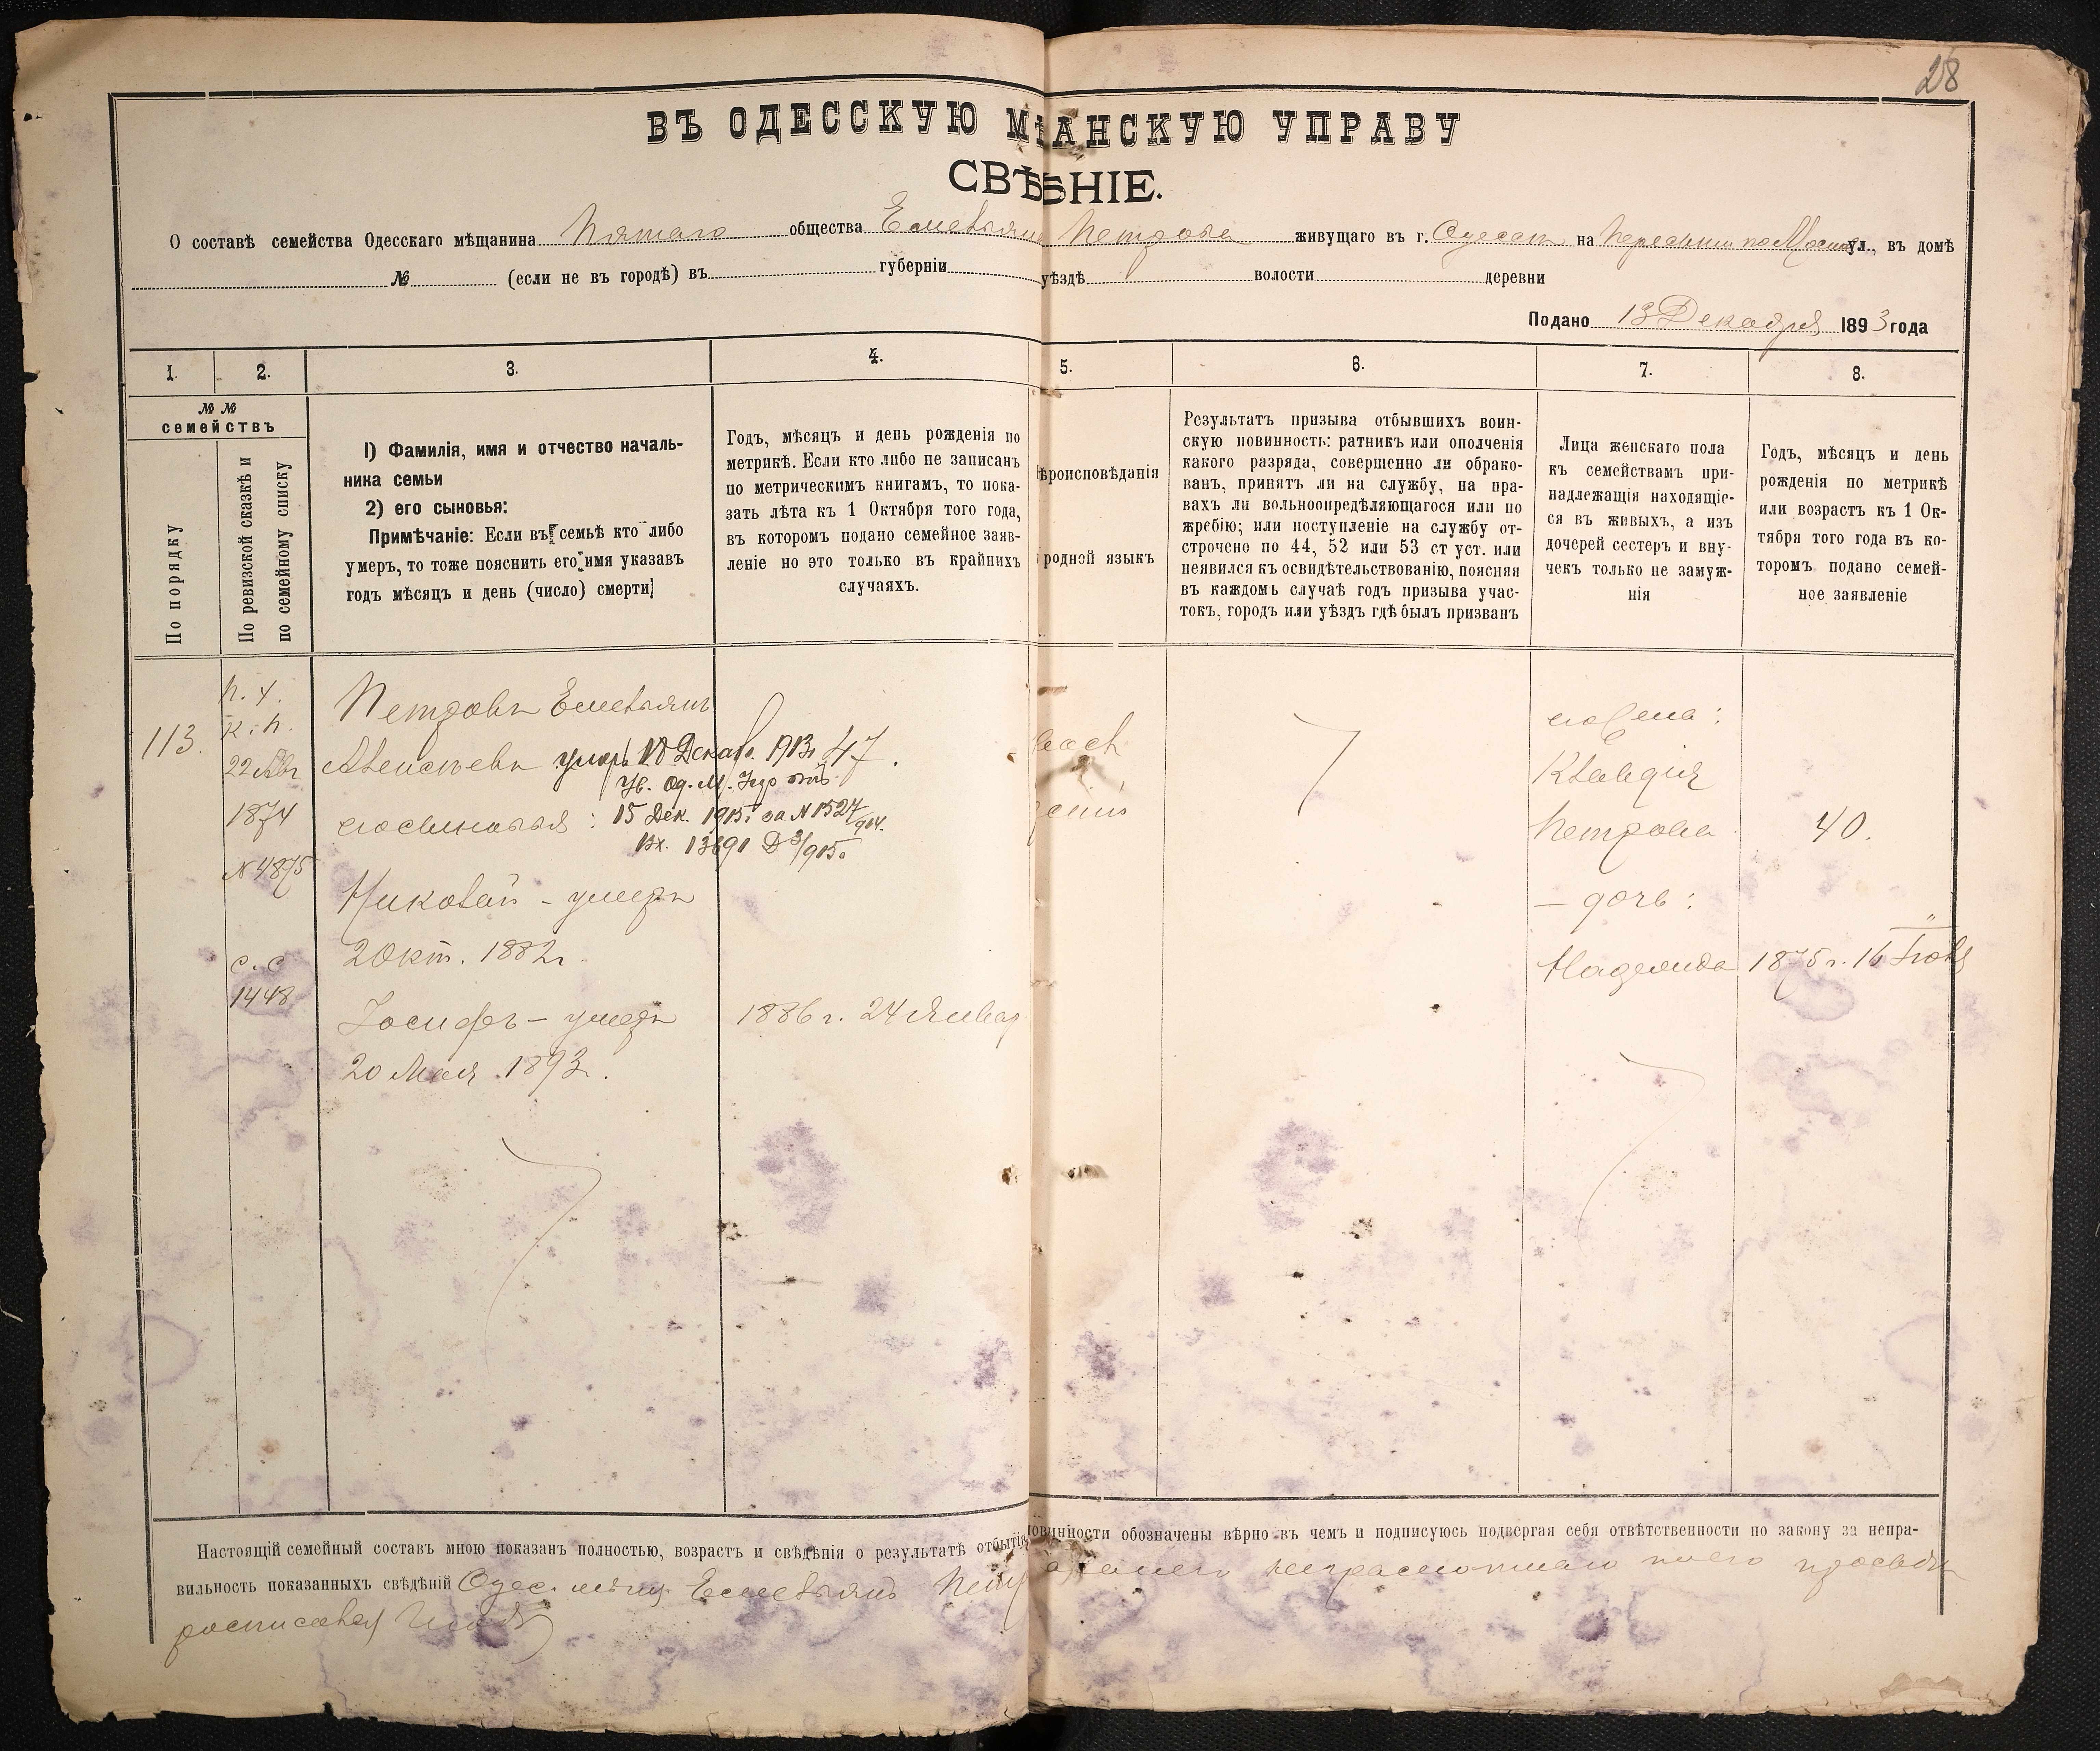 28
ВЪ ОДЕССКУЮ МѢАНСКУЮ УПРАВУ
СВѢНІЕ.
О составѣ семейства Одесскаго мѣщанина Пятаго общества Емельяна Петрова живущаго въ г. Одессѣ на Пересыпи по ул., въ домѣ
№ (если не въ городѣ) въ губерніи уѣздѣ волости деревни
Подано 13 Декабря 1893 года
1. 2. 3. 4. 5. 6. 7. 8.
№ №
семействъ
По порядку
По ревизской сказкѣ и
по семейному списку
1) Фамилія, имя и отчество началь-
ника семьи
2) его сыновья:
Примѣчаніе: Если въ семьѣ кто либо
умеръ, то тоже пояснить его имя указавъ
годъ мѣсяцъ и день (число) смерти
Годъ, мѣсяцъ и день рожденія по
метрикѣ. Если кто либо не записанъ
по метрическимъ книгамъ, то пока-
зать лѣта къ 1 Октября того года,
въ которомъ подано семейное заяв-
леніе но это только въ крайнихъ
случаяхъ.
ѣроисповѣданія
родной языкъ
Результатъ призыва отбывшихъ воин-
скую повинность: ратникъ или ополченія
какого разряда, совершенно ли обрако-
ванъ, принятъ ли на службу, на пра-
вахъ ли вольноопредѣляющагося или по
жребію; или поступленіе на службу от-
строчено по 44, 52 или 53 ст уст. или
неявился къ освидѣтельствованію, поясняя
въ каждомъ случаѣ годъ призыва учас-
токъ, городъ или уѣздъ гдѣ былъ призванъ
Лица женскаго пола
къ семействамъ при-
надлежащія находящіе-
ся въ живыхъ, а изъ
дочерей сестеръ и вну-
чекъ только не замуж-
нія
Годъ, мѣсяцъ и день
рожденія по метрикѣ
или возрастъ къ 1 Ок-
тября того года въ ко-
торомъ подано семей-
ное заявленіе
113.
П. Ч.
К. П.
22 Авг
1874
№ 4875
с. с
1448
Петровъ Емельянъ
Алексѣевъ умеръ 10 Декаб. 1913г 47.
Ув. Од. М.
сыновья: 15 Дек. 1915г за № 1527/914.
Вх. 13691 Д 3/915
Николай - умеръ
2 Окт. 1882г
Іосифъ - умеръ
20 Мая 1893.
1886 г. 24 Январ
жена:
Клавдія
Петрова
40.
- дочь:
Надежда
1875 г. 16 Іюля
Настоящій семейный составъ мною показанъ полностью, возрастъ и свѣдѣнія о результатѣ отбытія повинности обозначены вѣрно въ чемъ и подписуюсь подвергая себя отвѣтственности по закону за непра-
вильность показанныхъ свѣдѣній Одес. мѣщ. Емельянъ Петр неграмотнаго по его просьбѣ
росписался